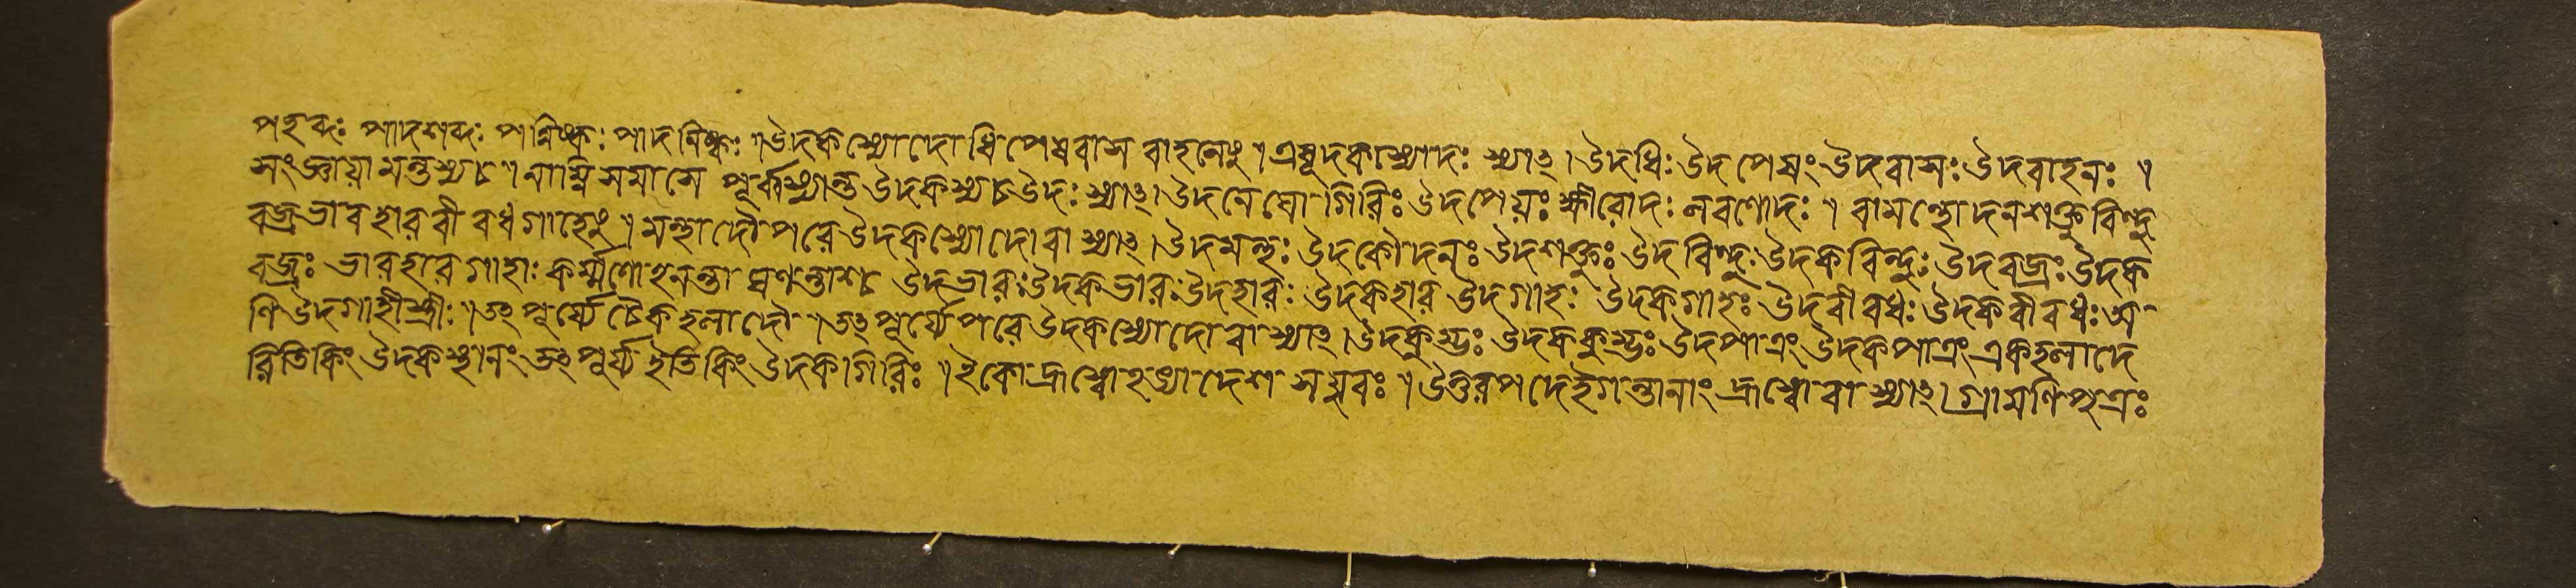 পচ্ছব্দঃ পাদশব্দঃ পন্নিষ্কঃ পাদনিষ্কঃ ৷৷ উদকস্যোদো ধিপেষবাস বাহনেষু ৷ এষূদকস্যোদঃ স্যাৎ । উদধিঃ উদপেষং উদবাসঃ উদবাহনঃ ৷
সংজ্ঞায়ামন্তস্যচ ৷৷ নাম্নি সমাসে পূর্ব্বস্যান্ত উদকস্যচ উদঃ স্যাৎ । উদমেঘো গিরিঃ উদপেয়ঃ ক্ষীরোদঃ লবণোদঃ ৷ বামন্থোদনশক্তুবিন্দু
বজ্রভাবহারবীবধগাহেষু ৷৷ মন্থাদৌ পরে উদকস্যোদো বা স্যাৎ । উদমন্থঃ উদকৌদনঃ উদশক্তুঃ উদবিন্দুঃ উদকবিন্দুঃ উদবজ্রঃ উদক
বজ্রঃ ভারহারগাহাঃ কর্ম্মণোহনন্তা ঘণন্তাশ্চ উদভারঃ উদকভারঃ উদহারঃ উদকহার উদগাহঃ উদকগাহঃ উদবীবধঃ উদকবীবধঃ অ
ণি উদগাহীস্ত্রীঃ ৷৷ পূর্য্যে চৈকহলাদৌ ৷৷ পূর্য্যে পরে উদকস্যোদো বা স্যাৎ । উদকুম্ভঃ উদককুম্ভঃ উদপাত্রং উদকপাত্রং একহলাদে
রিতিকিং উদকস্থানং পূর্য্য ইতিকিং উদকগিরিঃ ৷৷ ইকো হ্রাস্বোহঙ্যাদেশ সয়ুবঃ ৷৷ উত্তরপদে ইগন্তানাং হ্রাস্বো বা স্যাৎ । গ্রামণিপুত্রঃ